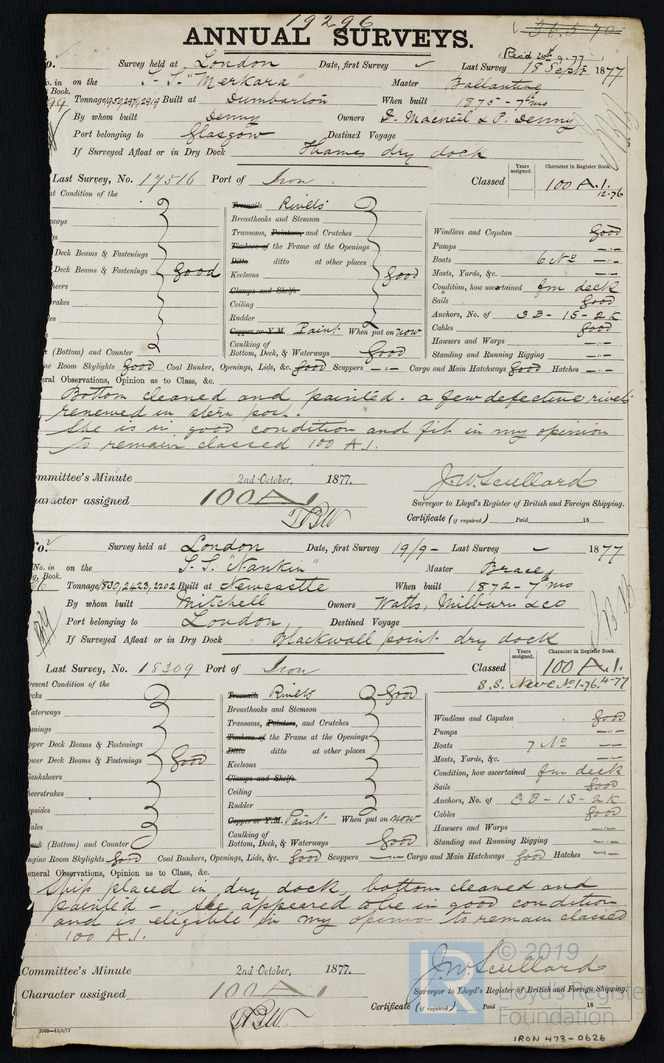 19296
ANNUAL SURVEYS.
36.5.70
Recd 20th 9.77
o. Survey held at London Date, first Survey Last Survey 18 Sept 1877
o. in on the S.S. "Merkara" Master Ballantine
Book. 99 Tonnage 1952, 2971, 2919 Built at Dumbarton When built 1875-7 mo
By whom built Denny Owners D. Macneil & P. Denny
Port belonging to Glasgow Destined Voyage
If Surveyed Afloat or in Dry Dock Thames dry dock
Last Survey, No. 17516 Port of Iron Classed Years assigned. Character in Register Book. 100 A.1. 12-76
t Condition of the
ways
Deck Beams & Fastenings
Deck Beams & Fastenings good
eers
rakes
e (Bottom) and Counter
Treenails Rivets
Breasthooks and Stemson
Transoms, Pointers, and Crutches
Timbers of the Frame at the Openings
Ditto ditto at other places
Keelsons good
Clamps and Shelfs
Ceiling
Rudder
Copper or Y.M. Paint When put on now
Caulking of Bottom, Deck, & Waterways good
Windlass and Capstan good
Pumps —"—
Boats 6 No —"—
Masts, Yards, &c. —"—
Condition, how ascertained fm deck
Sails good
Anchors, No. of 3B-1S-2K
Cables good
Hawsers and Warps —"—
Standing and Running Rigging —"—
ne Room Skylights good Coal Bunker, Openings, Lids, &c. good Scuppers —"— Cargo and Main Hatchways good Hatches —"—
eral Observations, Opinion as to Class, &c.
Bottom cleaned and painted. a few defective rivets
renewed in stern post.
She is in good condition and fit in my opinion
to remain classed 100 A.1.
ommittee's Minute 2nd October, 1877.
aracter assigned 100A1
J.W. Scullard
Surveyor to Lloyd's Register of British and Foreign Shipping.
Certificate (if required) Paid 18
o. Survey held at London Date, first Survey 19/9- Last Survey 1877
No. in on the S.S. "Nankin" Master Brace
Book. 26 Tonnage 1830, 2423, 2202 Built at Newcastle When built 1872-7 mo
By whom built Mitchell Owners Watts, Milburn & Co
Port belonging to London Destined Voyage
If Surveyed Afloat or in Dry Dock Blackwall point dry dock
Last Survey, No. 18309 Port of Iron Classed Years assigned. Character in Register Book. 100 A.1.
S.S. Newc No 1-76. 4-77
resent Condition of the
cks
aterways
mings
pper Deck Beams & Fastenings
ower Deck Beams & Fastenings good
lanksheers
heerstrakes
opsides
ales
nk (Bottom) and Counter
Treenails Rivets good
Breasthooks and Stemson
Transoms, Pointers, and Crutches
Timbers of the Frame at the Openings
Ditto ditto at other places
Keelsons
Clamps and Shelfs
Ceiling
Rudder
Copper or Y.M. Paint When put on now
Caulking of Bottom, Deck, & Waterways good
Windlass and Capstan good
Pumps —"—
Boats 7 No —"—
Masts, Yards, &c. —"—
Condition, how ascertained fm deck
Sails good
Anchors, No. of 3B-1S-2K
Cables good
Hawsers and Warps —"—
Standing and Running Rigging —"—
ngine Room Skylights good Coal Bunkers, Openings, Lids, &c. good Scuppers —"— Cargo and Main Hatchways good Hatches —"—
eneral Observations, Opinion as to Class, &c.
Ship placed in dry dock, bottom cleaned and
painted - she appeared to be in good condition
and is eligible in my opinion to remain classed
100 A.1.
Committee's Minute 2nd October, 1877.
Character assigned 100A1
J.W. Scullard
Surveyor to Lloyd's Register of British and Foreign Shipping.
Certificate (if required) Paid 18
2000—11/5/77
LR © 2019
Lloyd's Register
Foundation
IRON 473-0626